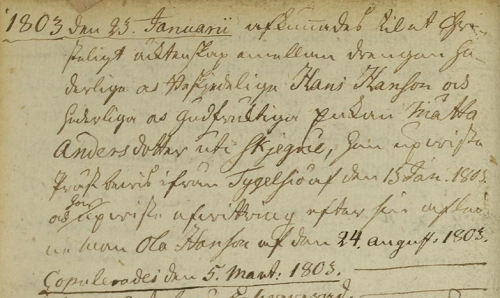 1803 den 23. Januarii afkunnades til et Chri-
steligt äktenskap emellan drengen he-
derlige oc Beskjedelige Hans Hanson och
hederliga oc gudfrucktiga pikan Mätta
Andersdotter uti Skjegrie, han upwiste
Präst bewis ifrån Tygelsiö af den 15 Jan. 1803
och hon upwiste afwittring efter sin afled-
ne man Ola Hanson af den 24. august. 1803.
Copulerades den 5. Mart: 1803.